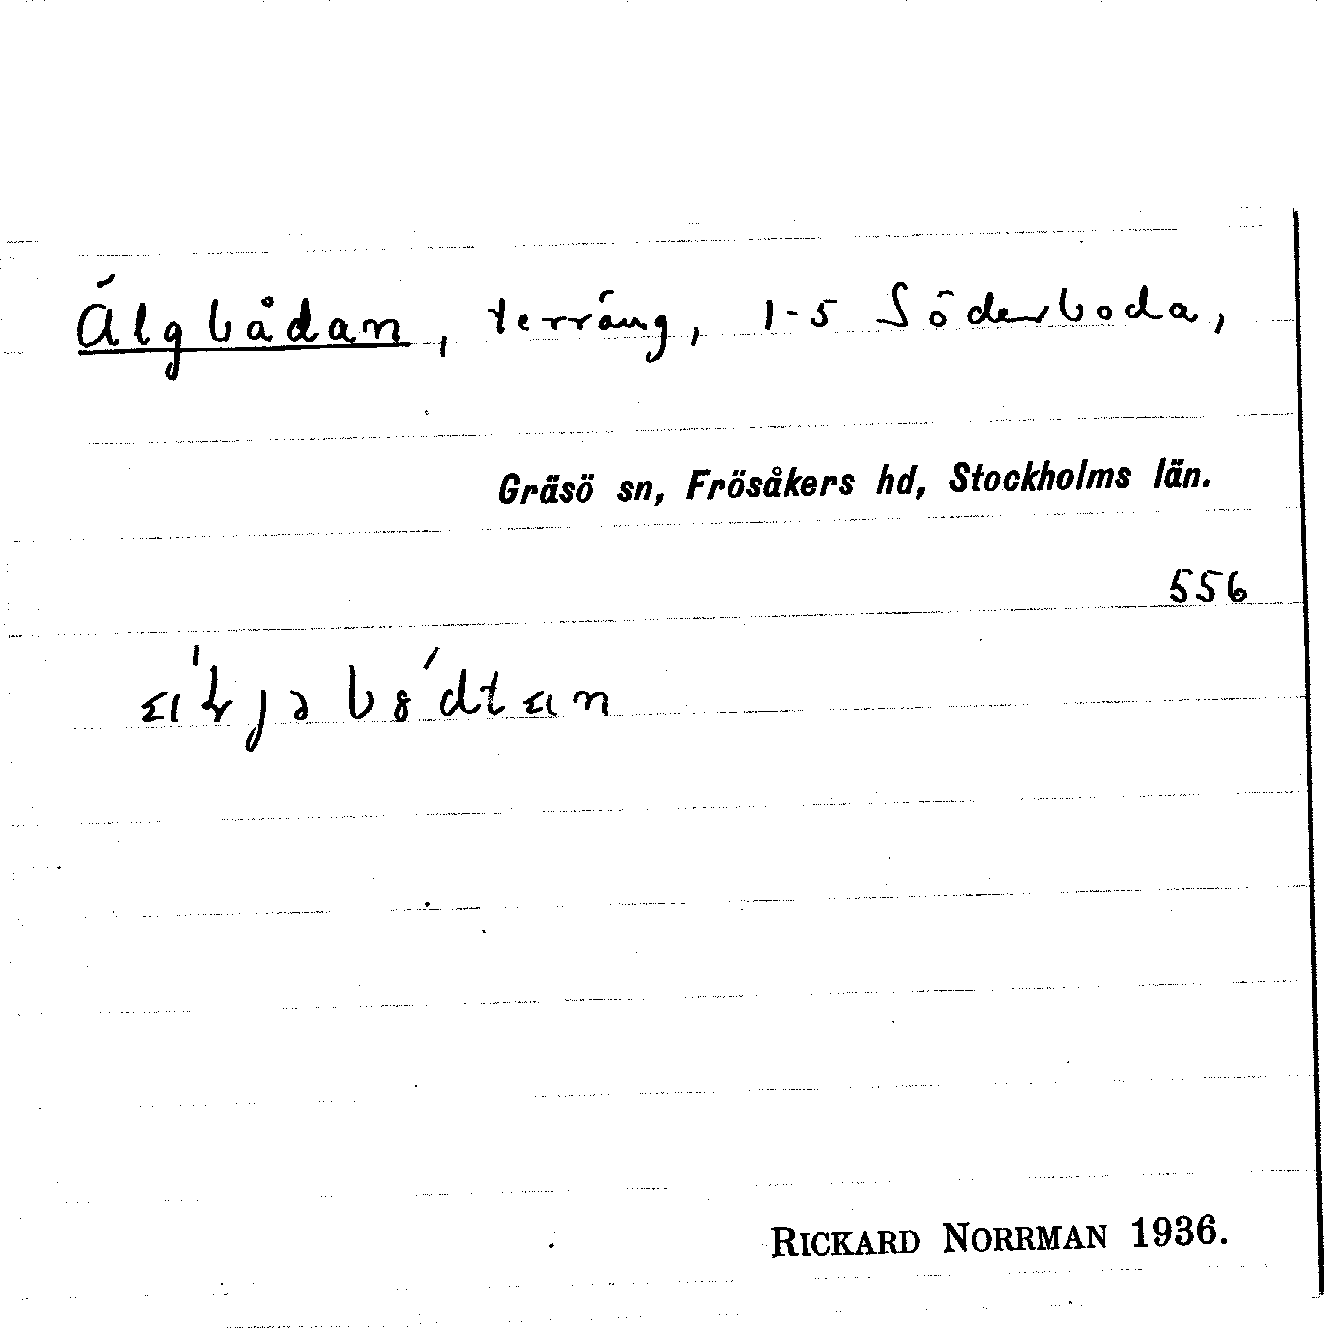 Älgbådan, terräng, 1-5 Söderboda,
Gräsö sn, Frösåkers hd, Stockholms län.
556
RICKARD NORRMAN 1936.